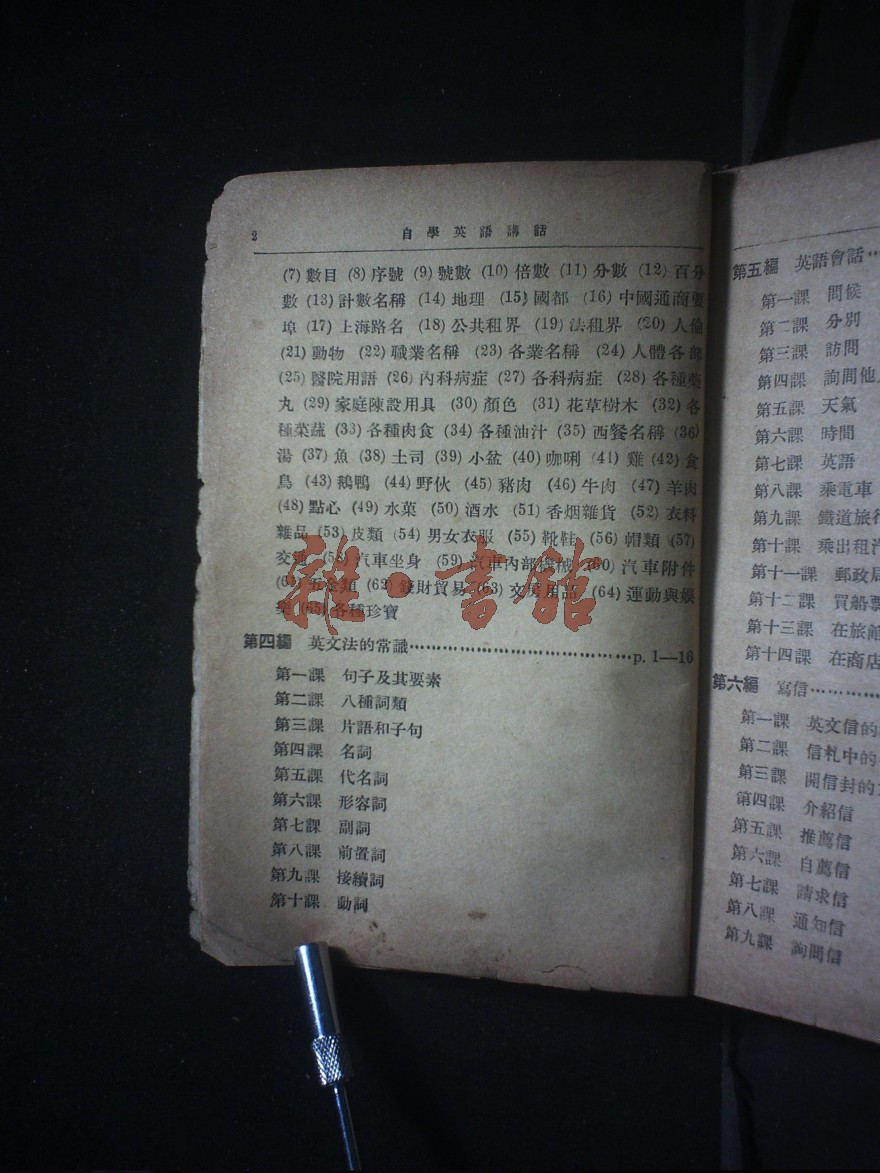 2
自學英語講話
(7) 數目 (8) 序號 (9) 號數 (10) 倍數 (11) 分數 (12) 百分
數 (13) 計數名稱 (14) 地理 (15) 國都 (16) 中國通商要
埠 (17) 上海路名 (18) 公共租界 (19) 法租界 (20) 人倫
(21) 動物 (22) 職業名稱 (23) 各業名稱 (24) 人體各部
(25) 醫院用語 (26) 內科病症 (27) 各科病症 (28) 各種藥
丸 (29) 家庭陳設用具 (30) 顏色 (31) 花草樹木 (32) 各
種菜蔬 (33) 各種肉食 (34) 各種油汁 (35) 西餐名稱 (36)
湯 (37) 魚 (38) 土司 (39) 小盆 (40) 咖唎 (41) 雞 (42) 食
鳥 (43) 鵝鴨 (44) 野伙 (45) 豬肉 (46) 牛肉 (47) 羊肉
(48) 點心 (49) 水菓 (50) 酒水 (51) 香烟雜貨 (52) 衣料
雜品 (53) 皮類 (54) 男女衣服 (55) 靴鞋 (56) 帽類 (57)
交通 (58) 汽車坐身 (59) 汽車內部機械 (60) 汽車附件
(61) 五金類 (62) 錢財貿易 (63) 文房用品 (64) 運動與娛
樂 (65) 各種珍寶
第四編 英文法的常識……………………………p. 1—16
第一課 句子及其要素
第二課 八種詞類
第三課 片語和子句
第四課 名詞
第五課 代名詞
第六課 形容詞
第七課 副詞
第八課 前置詞
第九課 接續詞
第十課 動詞
雜·書館
第五編 英語會話…
第一課 問候
第二課 分別
第三課 訪問
第四課 詢問他人
第五課 天氣
第六課 時間
第七課 英語
第八課 乘電車
第九課 鐵道旅行
第十課 乘出租汽
第十一課 郵政局
第十二課 買船票
第十三課 在旅館
第十四課 在商店
第六編 寫信…………
第一課 英文信的
第二課 信札中的
第三課 開信封的
第四課 介紹信
第五課 推薦信
第六課 自薦信
第七課 請求信
第八課 通知信
第九課 詢問信